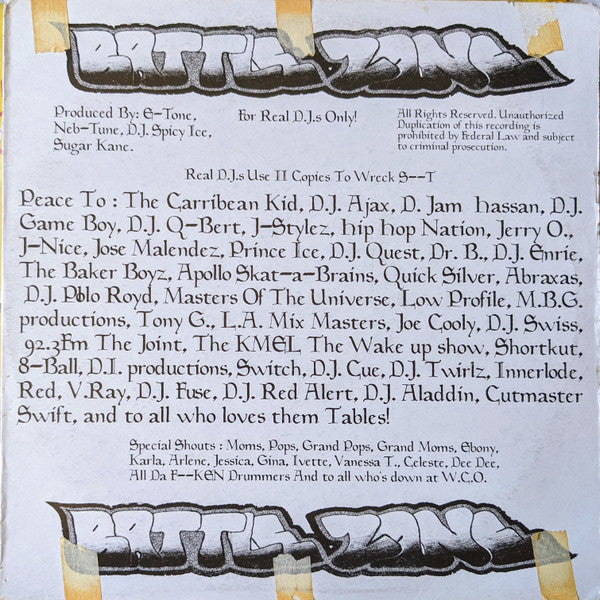 BATTLE ZONE
Produced By: E-Tone,
Neb-Tune, D.J. Spicy Ice,
Sugar Kane.
For Real D.J.s Only!
All Rights Reserved. Unauthorized
Duplication of this recording is
prohibited by Federal Law and subject
to criminal prosecution.
Real D.J.s Use II Copies To Wreck S--T
Peace To : The Carribean Kid, D.J. Ajax, D. Jam Hassan, D.J.
Game Boy, D.J. Q-Bert, J-Stylez, Hip Hop Nation, Jerry O.,
J-Nice, Jose Malendez, Prince Ice, D.J. Quest, Dr. B., D.J. Enrie,
The Baker Boyz, Apollo Skat-a-Brains, Quick Silver, Abraxas,
D.J. Polo Royd, Masters Of The Universe, Low Profile, M.B.G.
productions, Tony G., L.A. Mix Masters, Joe Cooly, D.J. Swiss,
92.3Fm The Joint, The KMEL The Wake up show, Shortkut,
8-Ball, D.I. productions, Switch, D.J. Cue, D.J. Twirlz, Innerlode,
Red, V.Ray, D.J. Fuse, D.J. Red Alert, D.J. Aladdin, Cutmaster
Swift, and to all who loves them Tables!
Special Shouts : Moms, Pops, Grand Pops, Grand Moms, Ebony,
Karla, Arlene, Jessica, Gina, Ivette, Vanessa T., Celeste, Dee Dee,
All Da F--KEN Drummers And to all who's down at W.C.O.
BATTLE ZONE